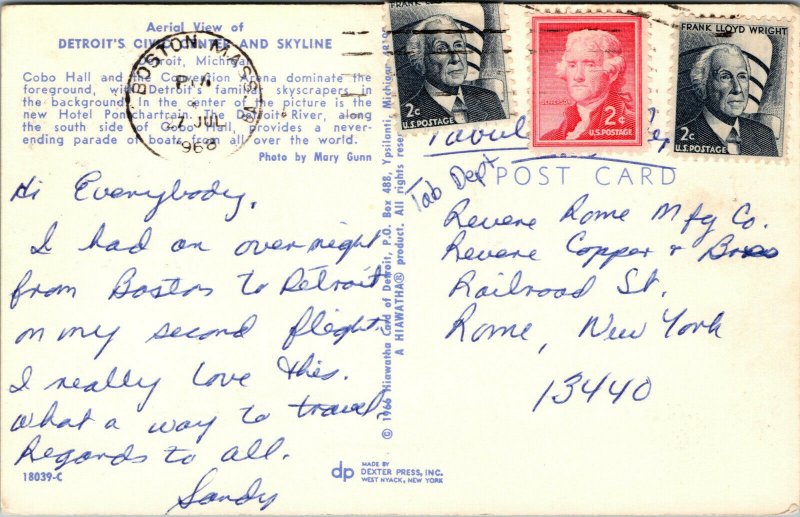 Aerial View of
DETROIT'S CIVIC CENTER AND SKYLINE
Detroit, Michigan
Cobo Hall and the Convention Arena dominate the
foreground, with Detroit's familiar skyscrapers in
the background. In the center of the picture is the
new Hotel Pontchartrain. The Detroit River, along
the south side of Cobo Hall, provides a never-
ending parade of boats from all over the world.
Photo by Mary Gunn
BOSTON, MASS.
PM
7 JUL
1968
Hi Everybody,
I had an overnight
from Boston to Detroit
on my second flight
I really love this.
what a way to travel.
Regards to all.
Sandy
18039-C
© 1966 Hiawatha Card of Detroit, P.O. Box 488, Ypsilanti, Michigan
A HIAWATHA® product. All rights
dp MADE BY
DEXTER PRESS, INC.
WEST NYACK, NEW YORK
2c
U.S. POSTAGE
JEFFERSON
2¢
U.S. POSTAGE
FRANK LLOYD WRIGHT
2c
U.S. POSTAGE
POST CARD
Tab Dept
Revere Rome Mfg Co.
Revere Copper +
Railroad St.
Rome, New York
13440